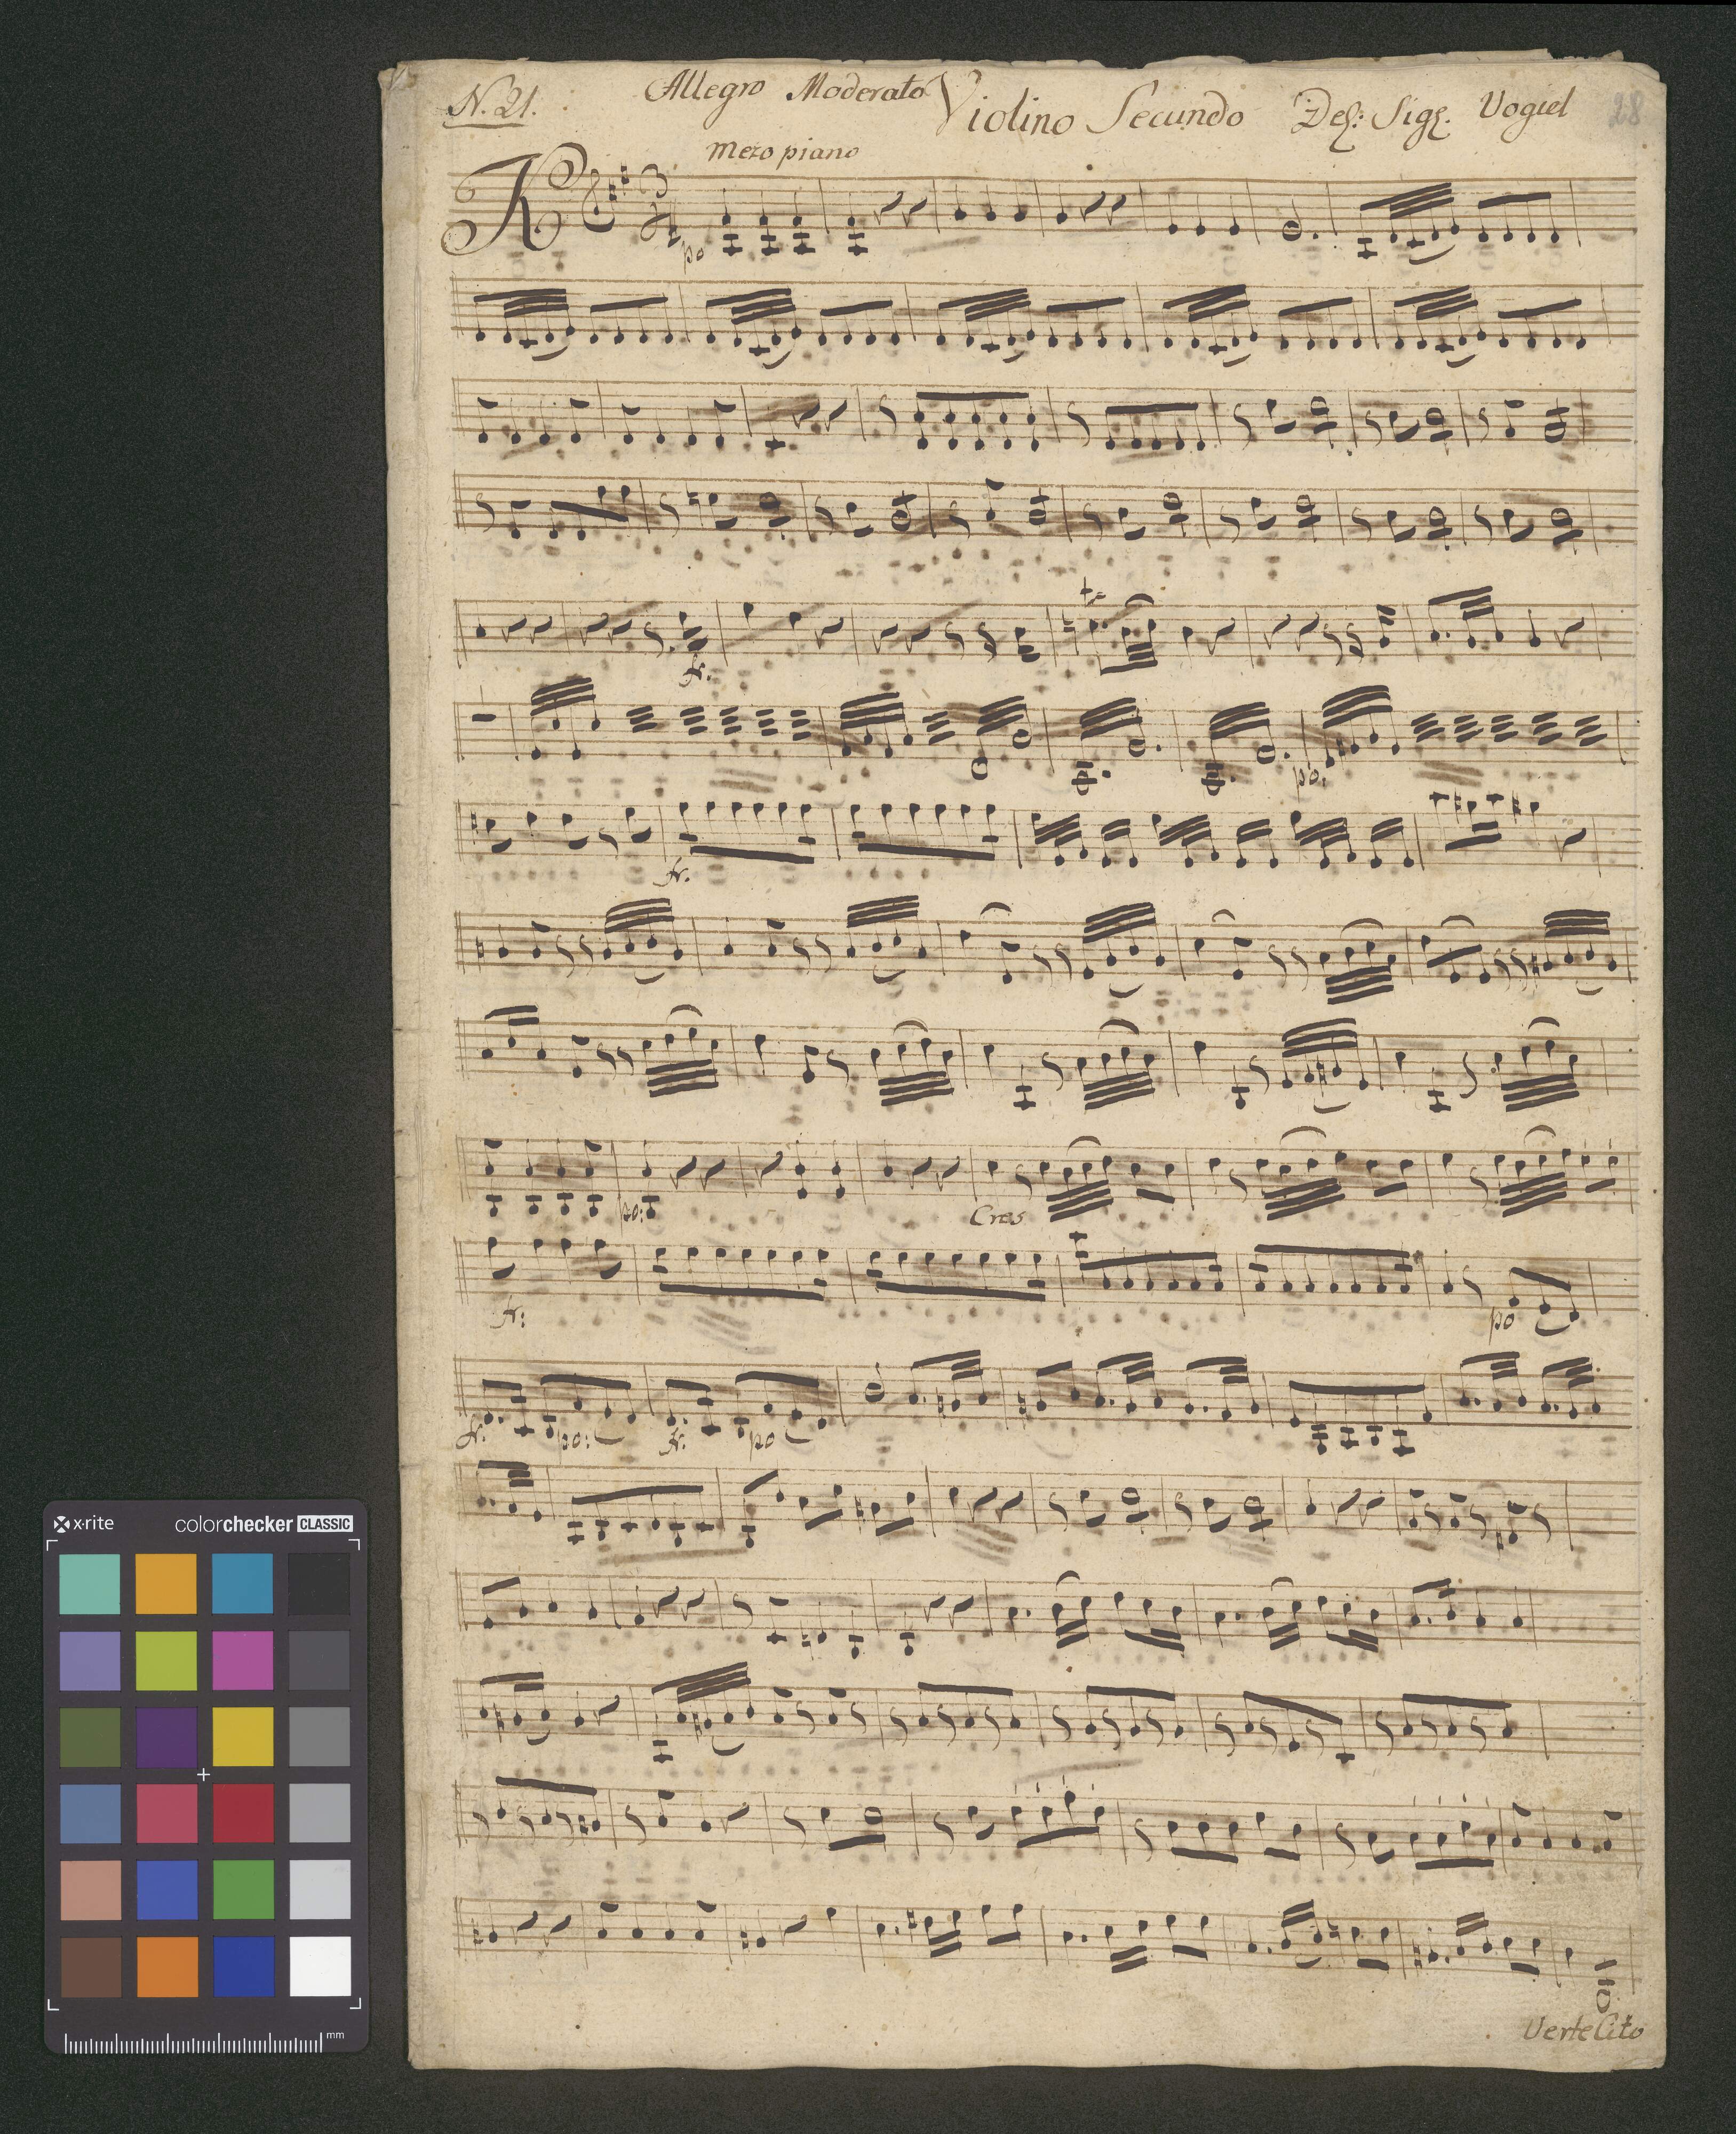 N. 21. Allegro Moderato Violino Secundo Del: Sigl. Vogiel 28
Mezo piano
po
fr.
po:
fr.
po:
Cres
fr:
po
fr. po: fr. po
Verte Cito
x-rite colorchecker CLASSIC
mm